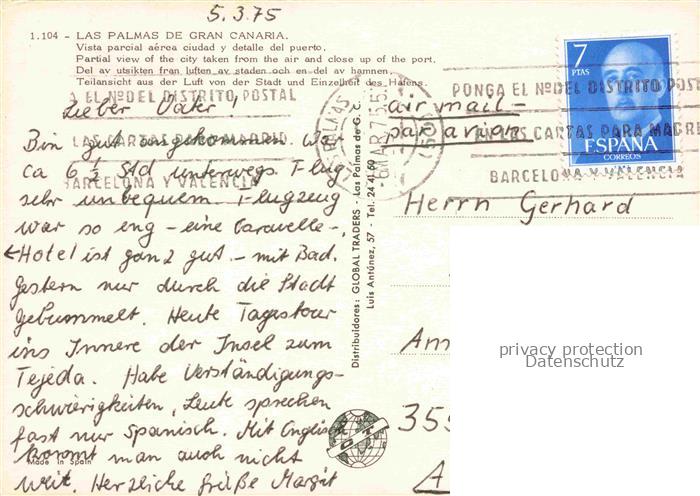 5.3.75
1.104 - LAS PALMAS DE GRAN CANARIA.
Vista parcial aérea ciudad y detalle del puerto.
Partial view of the city taken from the air and close up of the port.
Del av utsikten från luften av staden och en del av hamnen.
Teilansicht aus der Luft von der Stadt und Einzelheit des Hafens.
A EL NºDEL DISTRITO POSTAL
LAS CARTAS PARA MADRID
BARCELONA Y VALENCIA
Lieber Vater!
Bin gut angekommen. War
ca 6 ½ Std unterwegs. Flug
sehr unbequem. Flugzeug
war so eng - eine Caravelle -,
Hotel ist ganz gut - mit Bad.
Gestern nur durch die Stadt
gebummelt. Heute Tagestour
ins Innere der Insel zum
Tejeda. Habe Verständigungs-
schwierigkeiten, Leute sprechen
fast nur Spanisch. Mit Englisch
kommt man auch nicht
weit. Herzliche Grüße Margit
Made in Spain
Distribuidores: GLOBAL TRADERS - Las Palmas de G. C.
Luis Antúnez, 57 - Tel. 24 41 60
PONGA EL NºDEL DISTRITO POSTAL
CARTAS PARA MADRI
BARCELONA Y VALENCIA
air mail -
par avion
7
PTAS
ESPAÑA
CORREOS
Herrn Gerhard
privacy protection
Datenschutz
355